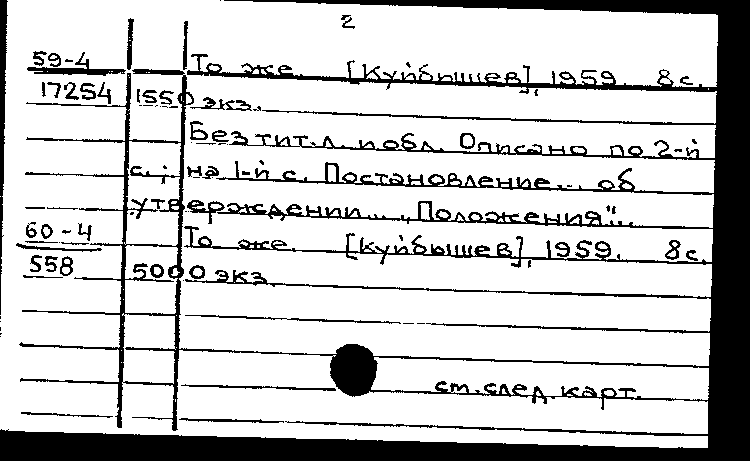 2
59-4 То же. [Куйбышев], 1959. 8 с.
17254 1550 экз.
Без тит. л. и обл. Описано по 2-й
с.; на 1-й с. Постановление... об
утверждении... "Положения"...
60-4 То же. [Куйбышев], 1959. 8 с.
558 5000 экз.
см. след. карт.